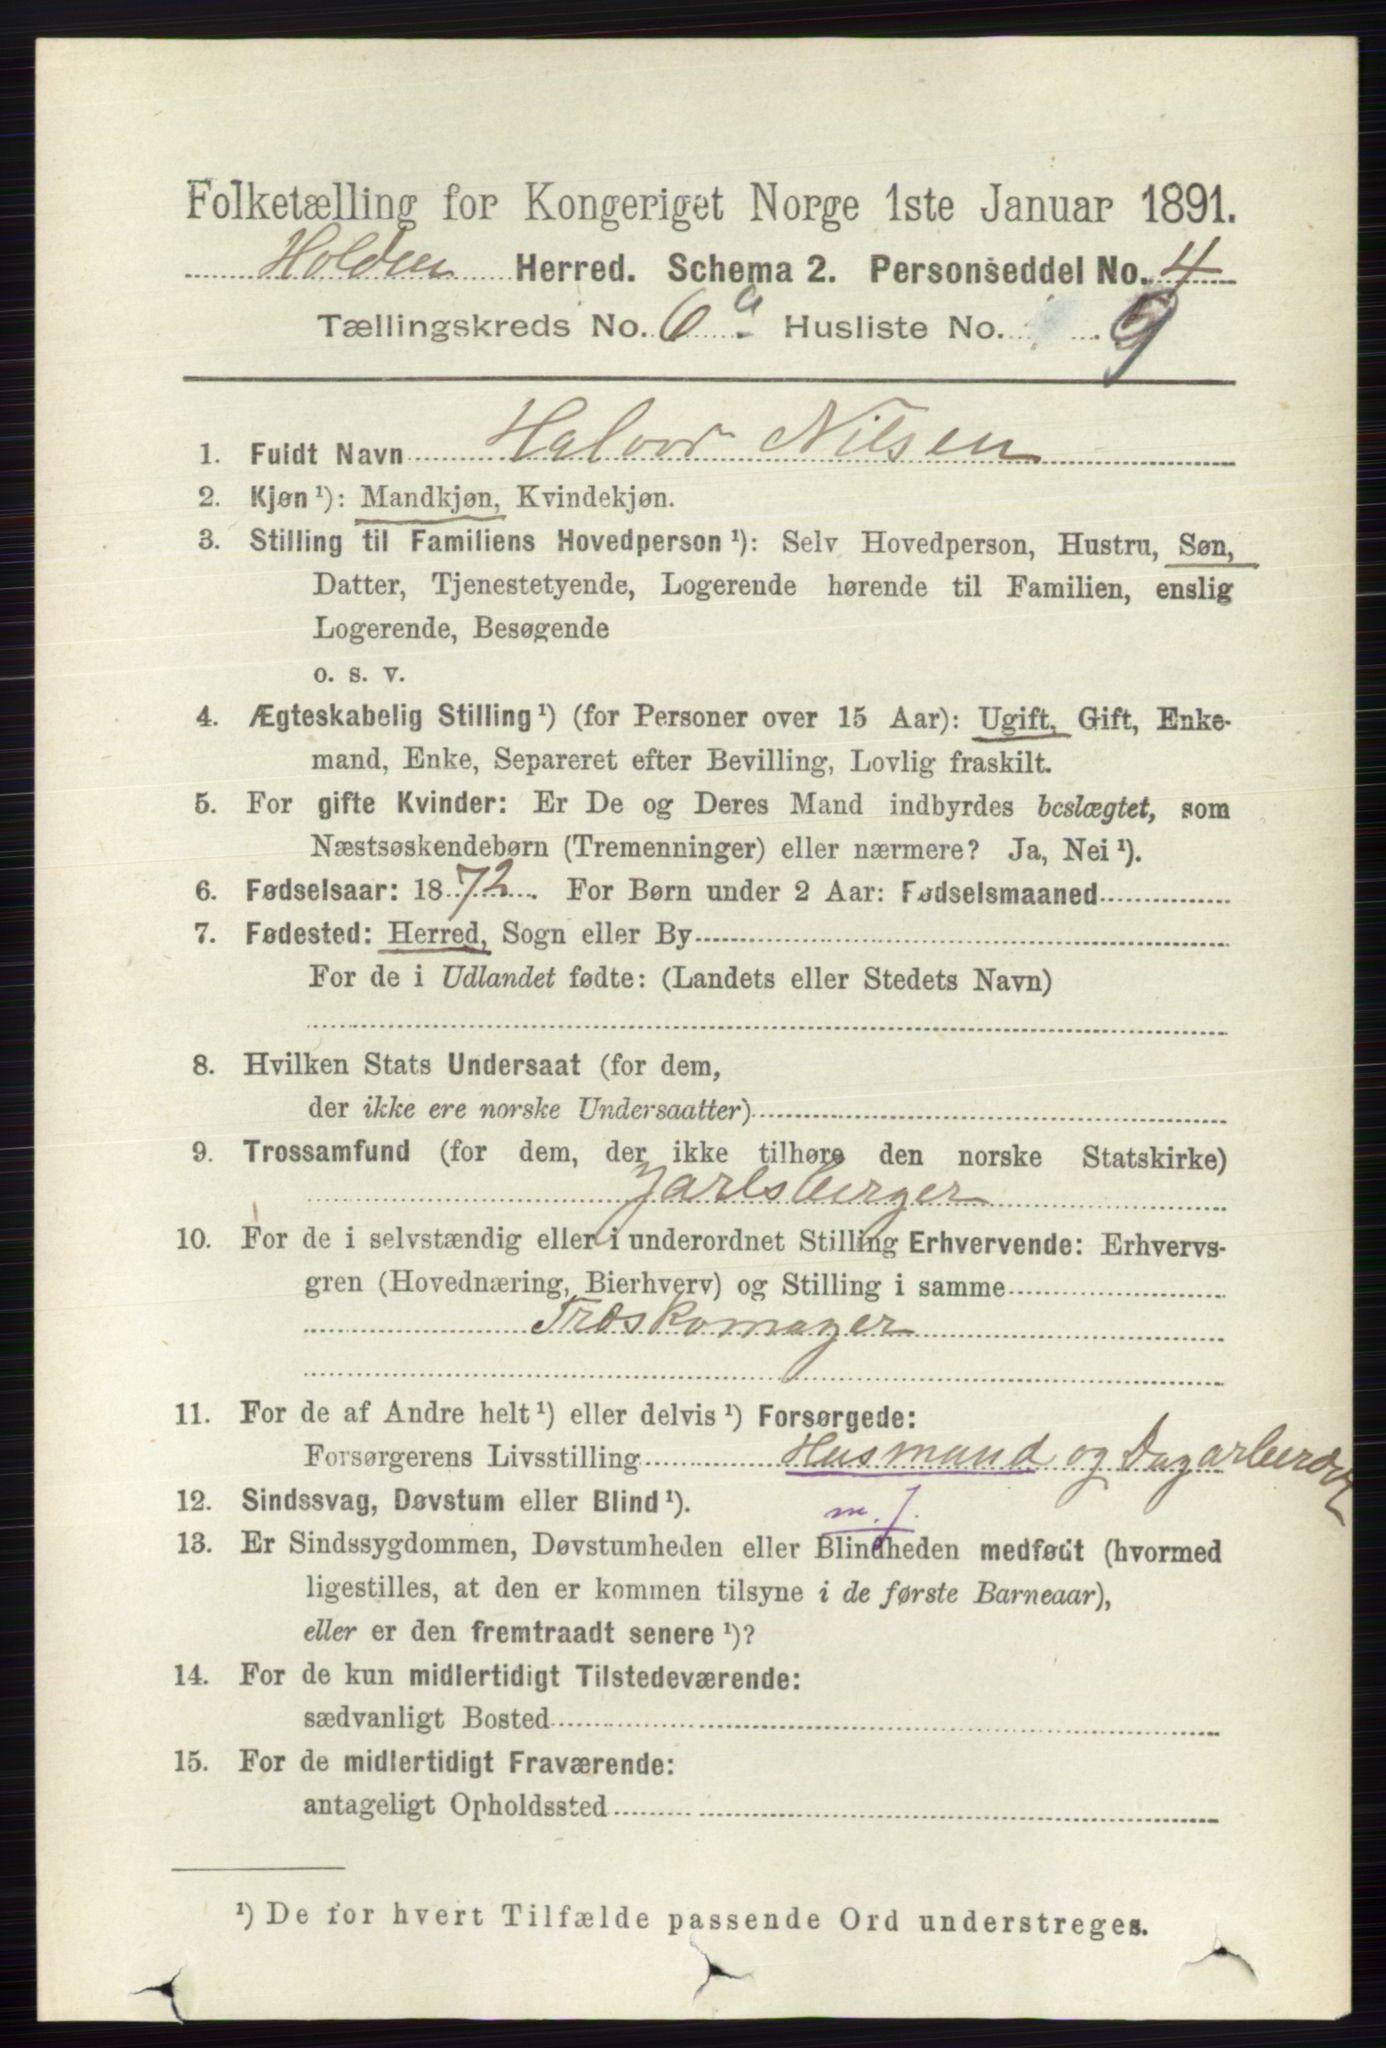 Folketælling for Kongeriget Norge 1ste Januar 1891.
Holden Herred. Schema 2. Personseddel No. 4
Tællingskreds No. 6 a Husliste No. 9
1. Fuldt Navn Halvor Nilsen
2. Kjøn ¹): Mandkjøn, Kvindekjøn.
3. Stilling til Familiens Hovedperson ¹): Selv Hovedperson, Hustru, Søn,
Datter, Tjenestetyende, Logerende hørende til Familien, enslig
Logerende, Besøgende
o. s. v.
4. Ægteskabelig Stilling ¹) (for Personer over 15 Aar): Ugift, Gift, Enke-
mand, Enke, Separeret efter Bevilling, Lovlig fraskilt.
5. For gifte Kvinder: Er De og Deres Mand indbyrdes beslægtet, som
Næstsøskendebørn (Tremenninger) eller nærmere? Ja, Nei ¹).
6. Fødselsaar: 1872. For Børn under 2 Aar: Fødselsmaaned
7. Fødested: Herred, Sogn eller By
For de i Udlandet fødte: (Landets eller Stedets Navn)
8. Hvilken Stats Undersaat (for dem,
der ikke ere norske Undersaatter)
9. Trossamfund (for dem, der ikke tilhøre den norske Statskirke)
Jarlsberger
10. For de i selvstændig eller i underordnet Stilling Erhvervende: Erhvervs-
gren (Hovednæring, Bierhverv) og Stilling i samme
Træskomager
11. For de af Andre helt ¹) eller delvis ¹) Forsørgede:
Forsørgerens Livsstilling Husmand og Dagarbeider
12. Sindssvag, Døvstum eller Blind ¹). m. J.
13. Er Sindssygdommen, Døvstumheden eller Blindheden medfødt (hvormed
ligestilles, at den er kommen tilsyne i de første Barneaar),
eller er den fremtraadt senere ¹)?
14. For de kun midlertidigt Tilstedeværende:
sædvanligt Bosted
15. For de midlertidigt Fraværende:
antageligt Opholdssted
¹) De for hvert Tilfælde passende Ord understreges.